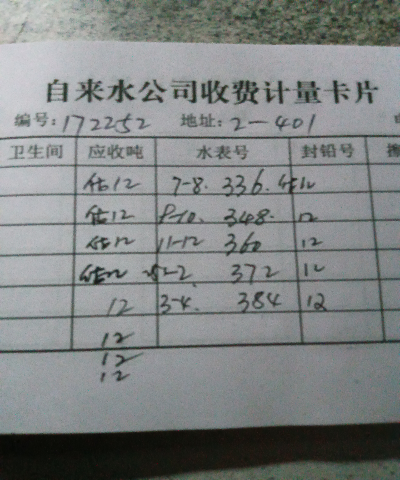 自来水公司收费计量卡片
编号:172252 地址:2-401
卫生间 应收吨 水表号 封铅号
估12 7-8. 336. 估12
估12 8-10. 348. 12
估12 11-12 360 12
估12 2-2. 372 12
12 3-4. 384 12
12
12
12